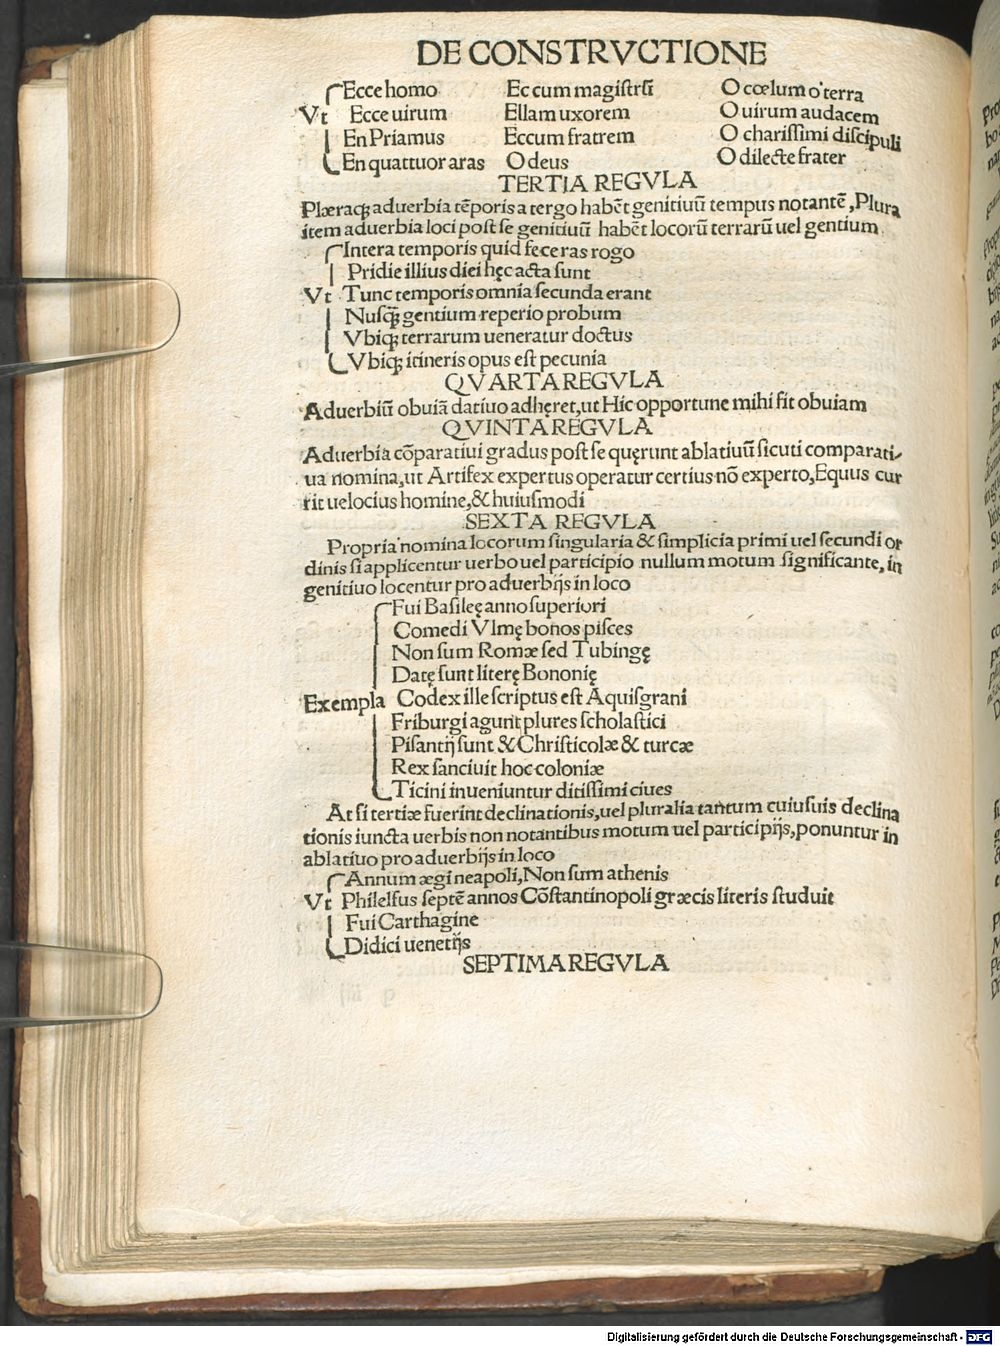 DE CONSTRVCTIONE
Ecce homo Eccum magistrū O cœlum o terra
Vt Ecce uirum Ellam uxorem O uirum audacem
En Priamus Eccum fratrem O charissimi discipuli
En quattuor aras O deus O dilecte frater
TERTIA REGVLA
Plæraq; aduerbia tēporis a tergo habēt genitiuū tempus notantē, Plura
item aduerbia loci post se genitiuū habēt locorū terrarū uel gentium
Intera temporis quid feceras rogo
Pridie illius diei hęc acta sunt
Vt Tunc temporis omnia secunda erant
Nusq̃ gentium reperio probum
Vbiq; terrarum ueneratur doctus
Vbiq; itineris opus est pecunia
QVARTA REGVLA
Aduerbiū obuiā datiuo adhęret, ut Hic opportune mihi fit obuiam
QVINTA REGVLA
Aduerbia cōparatiui gradus post se quęrunt ablatiuū sicuti comparati-
ua nomina, ut Artifex expertus operatur certius nō experto, Equus cur
rit uelocius homine, & huiusmodi
SEXTA REGVLA
Propria nomina locorum singularia & simplicia primi uel secundi or
dinis si applicentur uerbo uel participio nullum motum significante, in
genitiuo locentur pro aduerbijs in loco
Fui Basileę anno superiori
Comedi Vlmę bonos pisces
Non sum Romæ sed Tubingę
Datę sunt literę Bononię
Exempla Codex ille scriptus est Aquisgrani
Friburgi agunt plures scholastici
Pisantij sunt & Christicolæ & turcæ
Rex sanciuit hoc coloniæ
Ticini inueniuntur ditissimi ciues
At si tertiæ fuerint declinationis, uel pluralia tantum cuiusuis declina
tionis iuncta uerbis non notantibus motum uel participijs, ponuntur in
ablatiuo pro aduerbijs in loco
Annum ægi neapoli, Non sum athenis
Vt Philelfus septē annos Cōstantinopoli græcis literis studuit
Fui Carthagine
Didici uenetijs
SEPTIMA REGVLA
Digitalisierung gefördert durch die Deutsche Forschungsgemeinschaft - DFG